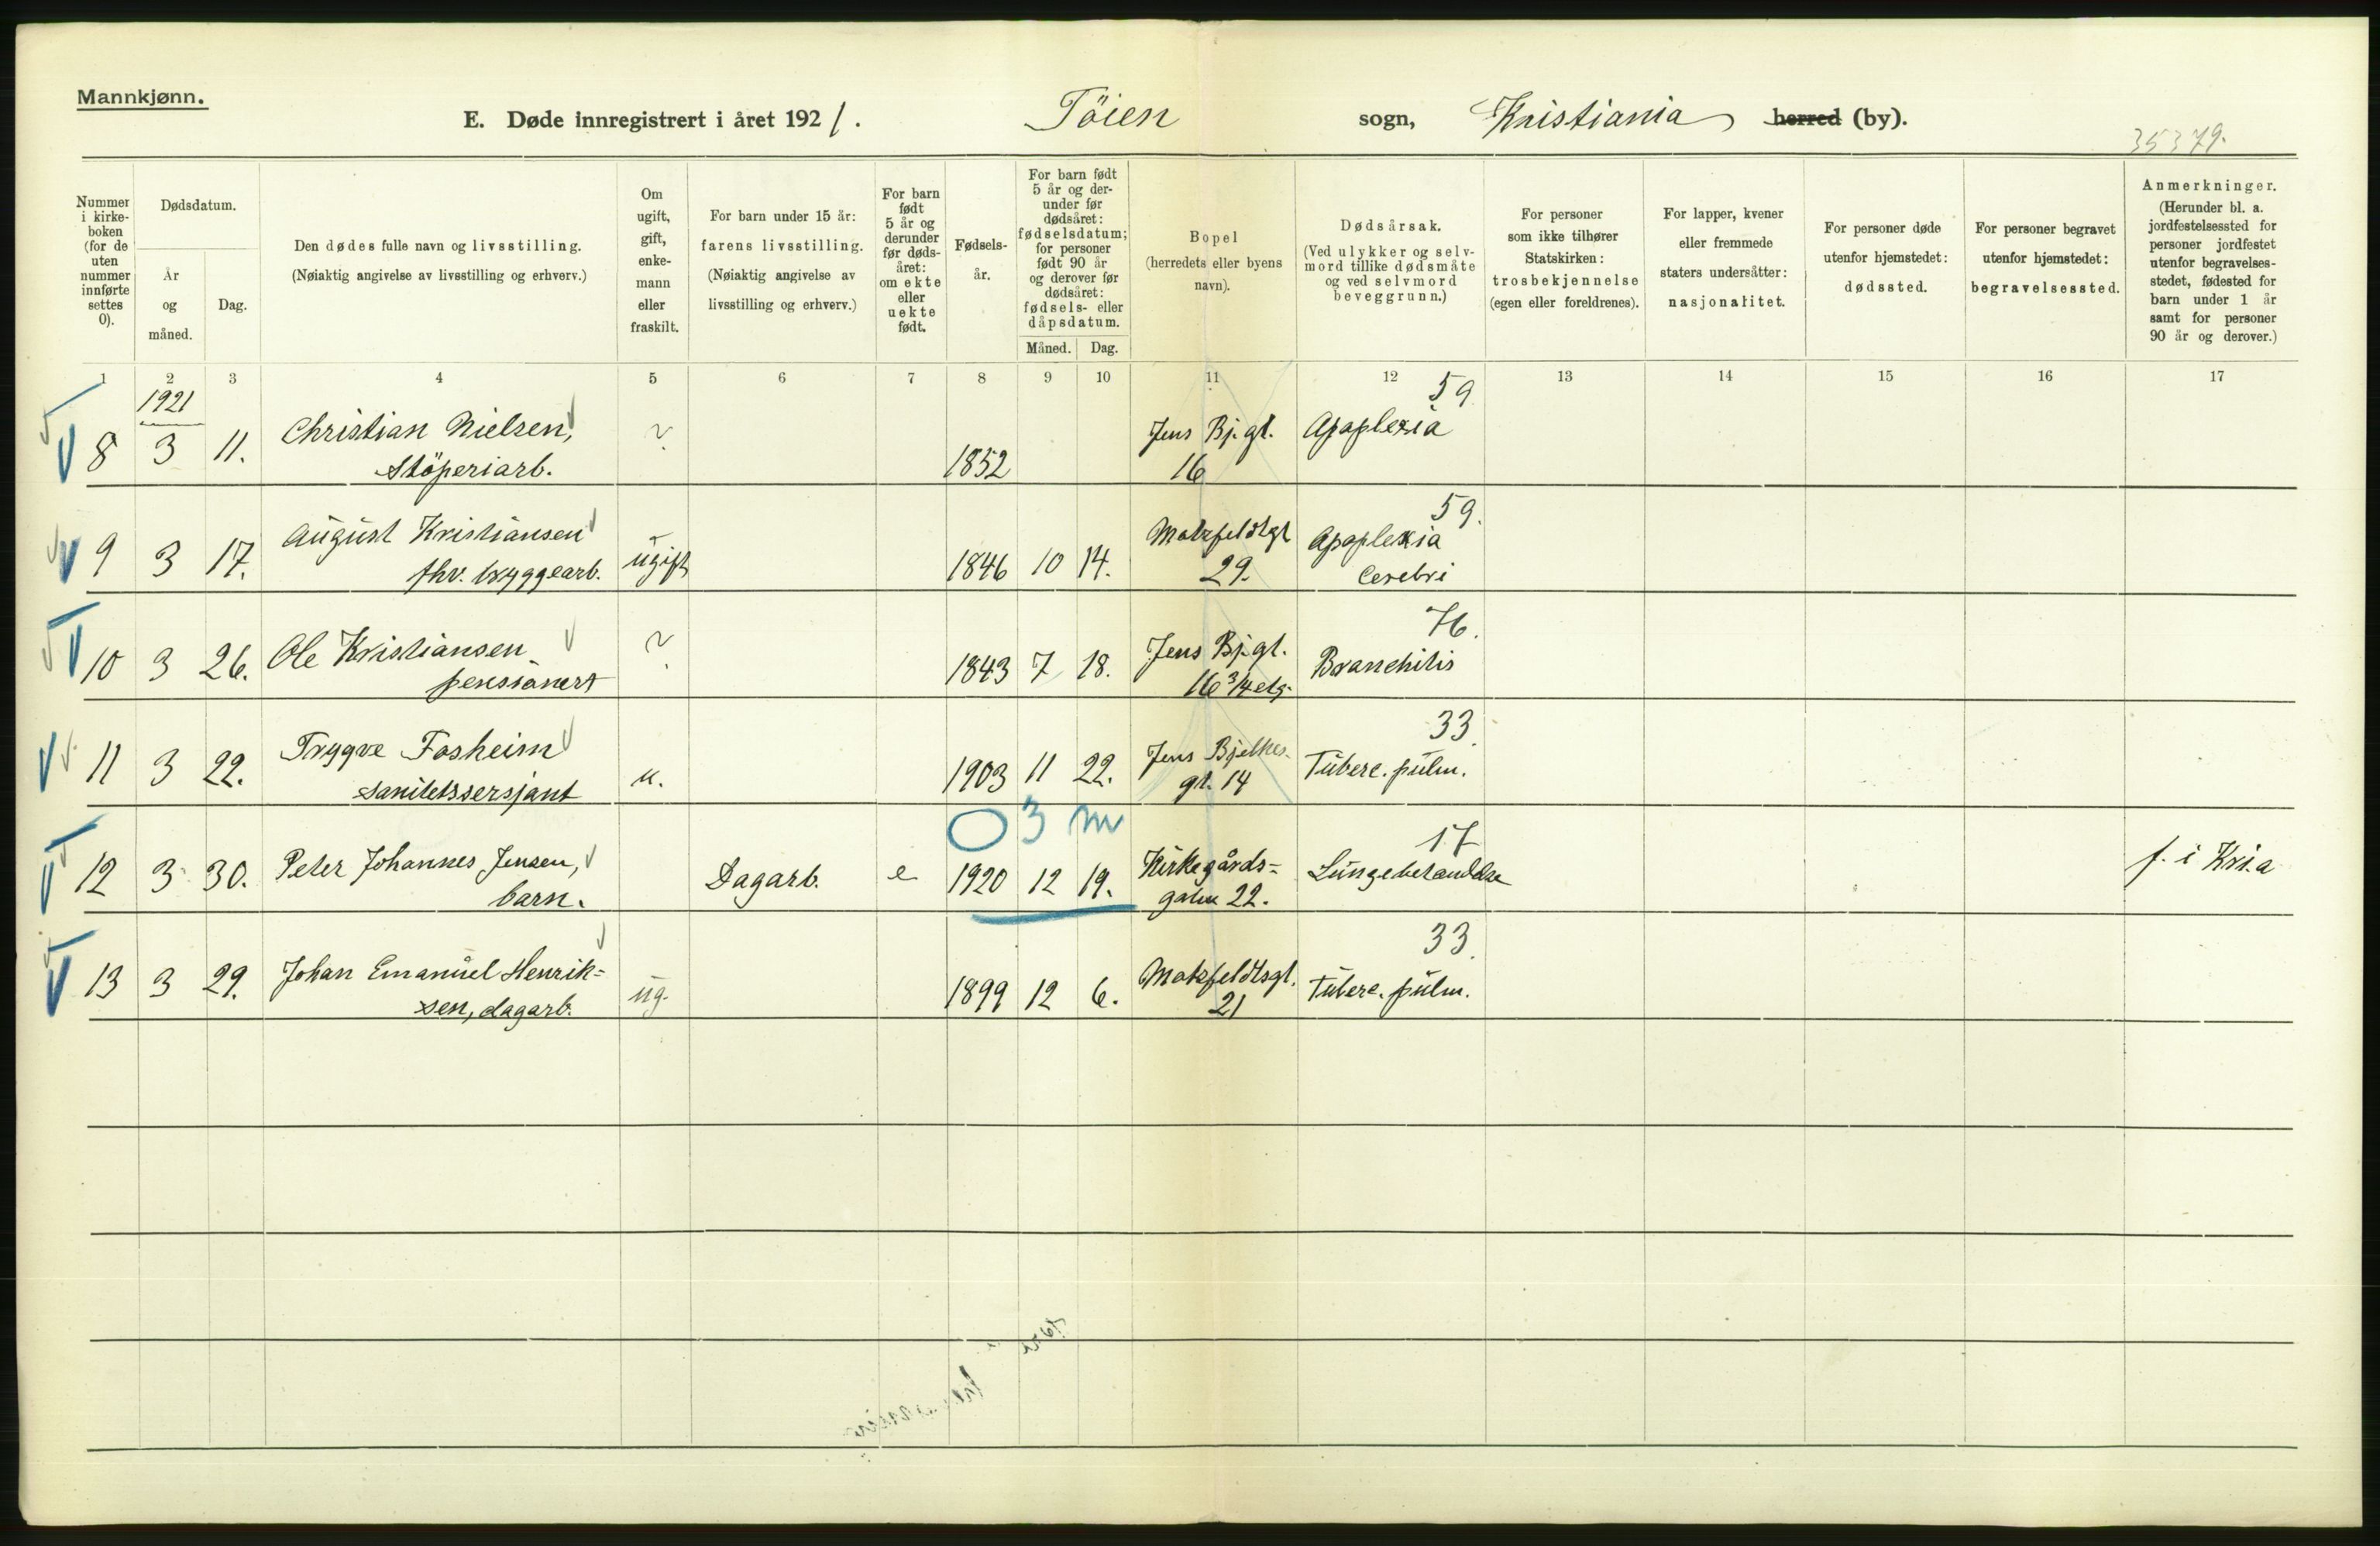 Mannkjønn.
E. Døde innregistrert i året 1921. Töien sogn, Kristiania herred (by).
35379.
Nummer i kirke- boken (for de uten nummer innførte settes 0).
Dødsdatum.
År og måned.
Dag.
Den dødes fulle navn og livsstilling.
(Nøiaktig angivelse av livsstilling og erhverv.)
Om ugift, gift, enke- mann eller fraskilt.
For barn under 15 år: farens livsstilling. (Nøiaktig angivelse av livsstilling og erhverv.)
For barn født 5 år og derunder før døds- året: om ekte eller uekte født.
Fødsels- år.
For barn født 5 år og der- under før dødsåret: fødselsdatum; for personer født 90 år og derover før dødsåret: fødsels- eller dåpsdatum.
Måned. Dag.
Bopel (herredets eller byens navn).
Dødsårsak. (Ved ulykker og selv- mord tillike dødsmåte og ved selvmord beveggrunn.)
For personer som ikke tilhører Statskirken: trosbekjennelse (egen eller foreldrenes).
For lapper, kvener eller fremmede staters undersåtter: nasjonalitet.
For personer døde utenfor hjemstedet: dødssted.
For personer begravet utenfor hjemstedet: begravelsessted.
Anmerkninger. (Herunder bl. a. jordfestelsessted for personer jordfestet utenfor begravelses- stedet, fødested for barn under 1 år samt for personer 90 år og derover.)
1 2 3 4 5 6 7 8 9 10 11 12 13 14 15 16 17
1921 59
8 3 11. Christian Nielsen, ? Jens Bj. gt. Apoplexia
Stöperiarb. 1852 16
59.
9 3 17. August Kristiansen ugift 1846 10 14. Motzfeldtgt Apoplexia
fhv. bryggearb. 29. Cerebri
76.
10 3 26. Ole Kristiansen ? 1843 7 18. Jens Bj. gt. Bronchitis
pensionert 16 3/4 etg.
33.
11 3 22. Trygve Fosheim u. 1903 11 22. Jens Bjelkes- Tuberc. pulm.
sanitetssersjant gt. 14
0 3 m 17
12 3 30. Peter Johannes Jensen, Dagarb. e 1920 12 19. Kirkegårds= Lungebetændelse f. i Kr.a
barn. gaten 22.
33.
13 3 29. Johan Emanuel Henrik= ug. 1899 12 6. Motzfeldtsgt. Tuberc. pulm.
sen, dagarb. 21